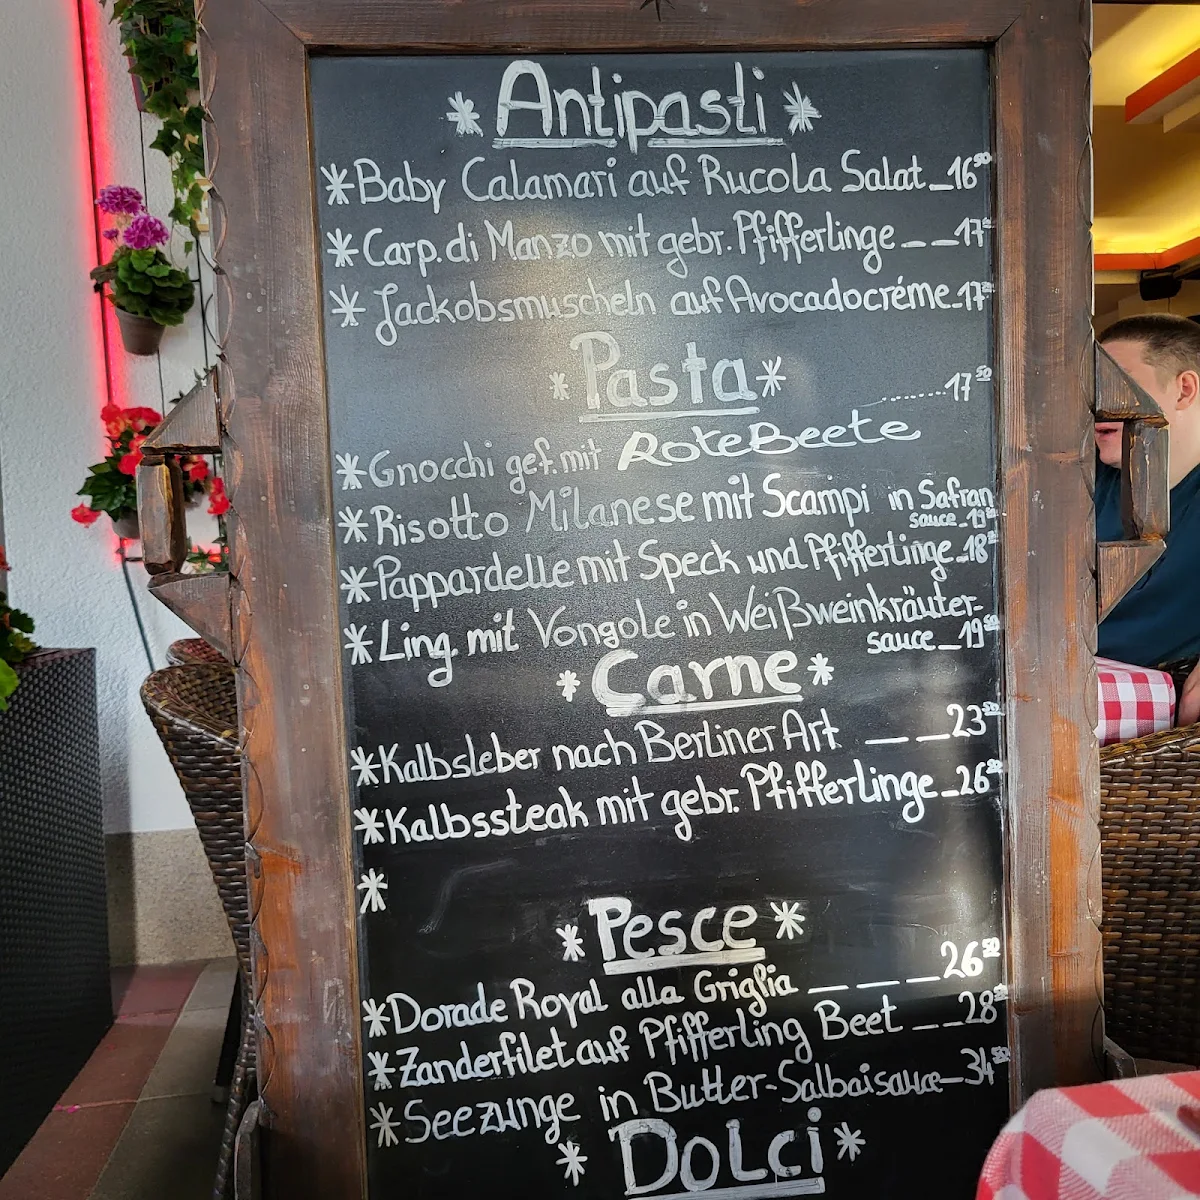 * Antipasti *
* Baby Calamari auf Rucola Salat _ 16⁵⁰
* Carp. di Manzo mit gebr. Pfifferlinge _ _ 17⁵⁰
* Jackobsmuscheln auf Avocadocréme _ 17⁵⁰
* Pasta *
........ 17⁵⁰
* Gnocchi gef. mit Rote Beete
* Risotto Milanese mit Scampi in Safran
sauce _ 19⁵⁰
* Pappardelle mit Speck und Pfifferlinge _ 18⁵⁰
* Ling. mit Vongole in Weißweinkräuter-
sauce _ 19⁵⁰
* Carne *
* Kalbsleber nach Berliner Art _ _ 23⁵⁰
* Kalbssteak mit gebr. Pfifferlinge _ 26⁵⁰
*
* Pesce *
* Dorade Royal alla Griglia _ _ _ _ 26⁵⁰
* Zanderfilet auf Pfifferling Beet _ _ 28⁵⁰
* Seezunge in Butter-Salbaisauce _ 34⁵⁰
* Dolci *